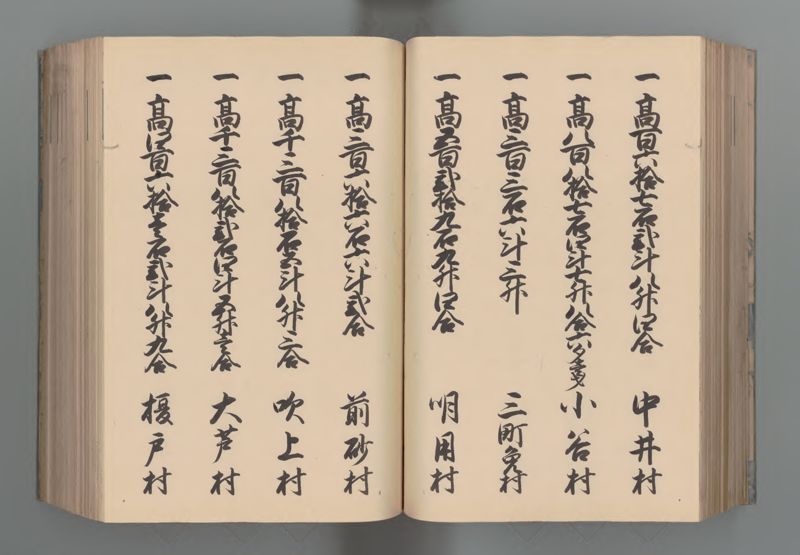 一高百六拾七石弐斗八升四合 中井村
一高八百八拾七石四斗七升八合六夕 小谷村
一高三百三石六斗三升 三町免村
一高五百弐拾九石九升四合 明用村
一高三百六拾六石六斗弐合 前砂村
一高千三百八拾石五斗八升三合 吹上村
一高千三百八拾弐石四斗五升壱合 大芦村
一高四百六拾壱石弐斗八升九合 榎戸村